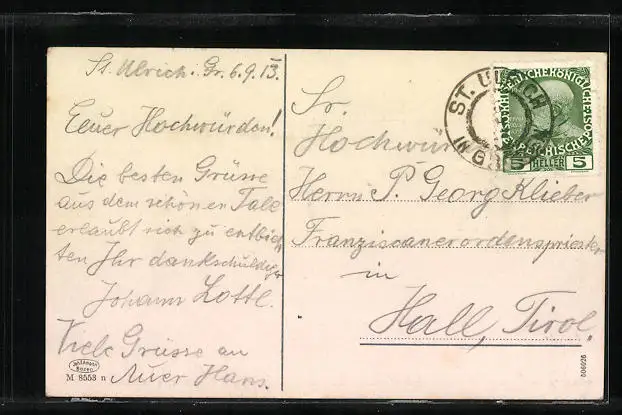 St. Ulrich. Gr. 6. 9. 13.
Euer Hochwürden!
Die besten Grüsse
aus dem schönen Tale
erlaubt sich zu entbie
ten Ihr dankschuldiger
Johann Lottl.
Viele Grüsse an
Auer Hans.
M 8553 n
ST. ULRICH
IN GR
KAISERLICHE KÖNIGLICHE ÖSTERREICHISCHE POST
5 HELLER 5
Sr.
Hochwür
Herrn P. Georg Klieber
Franziscanerordenspriester
in
Hall, Tirol.